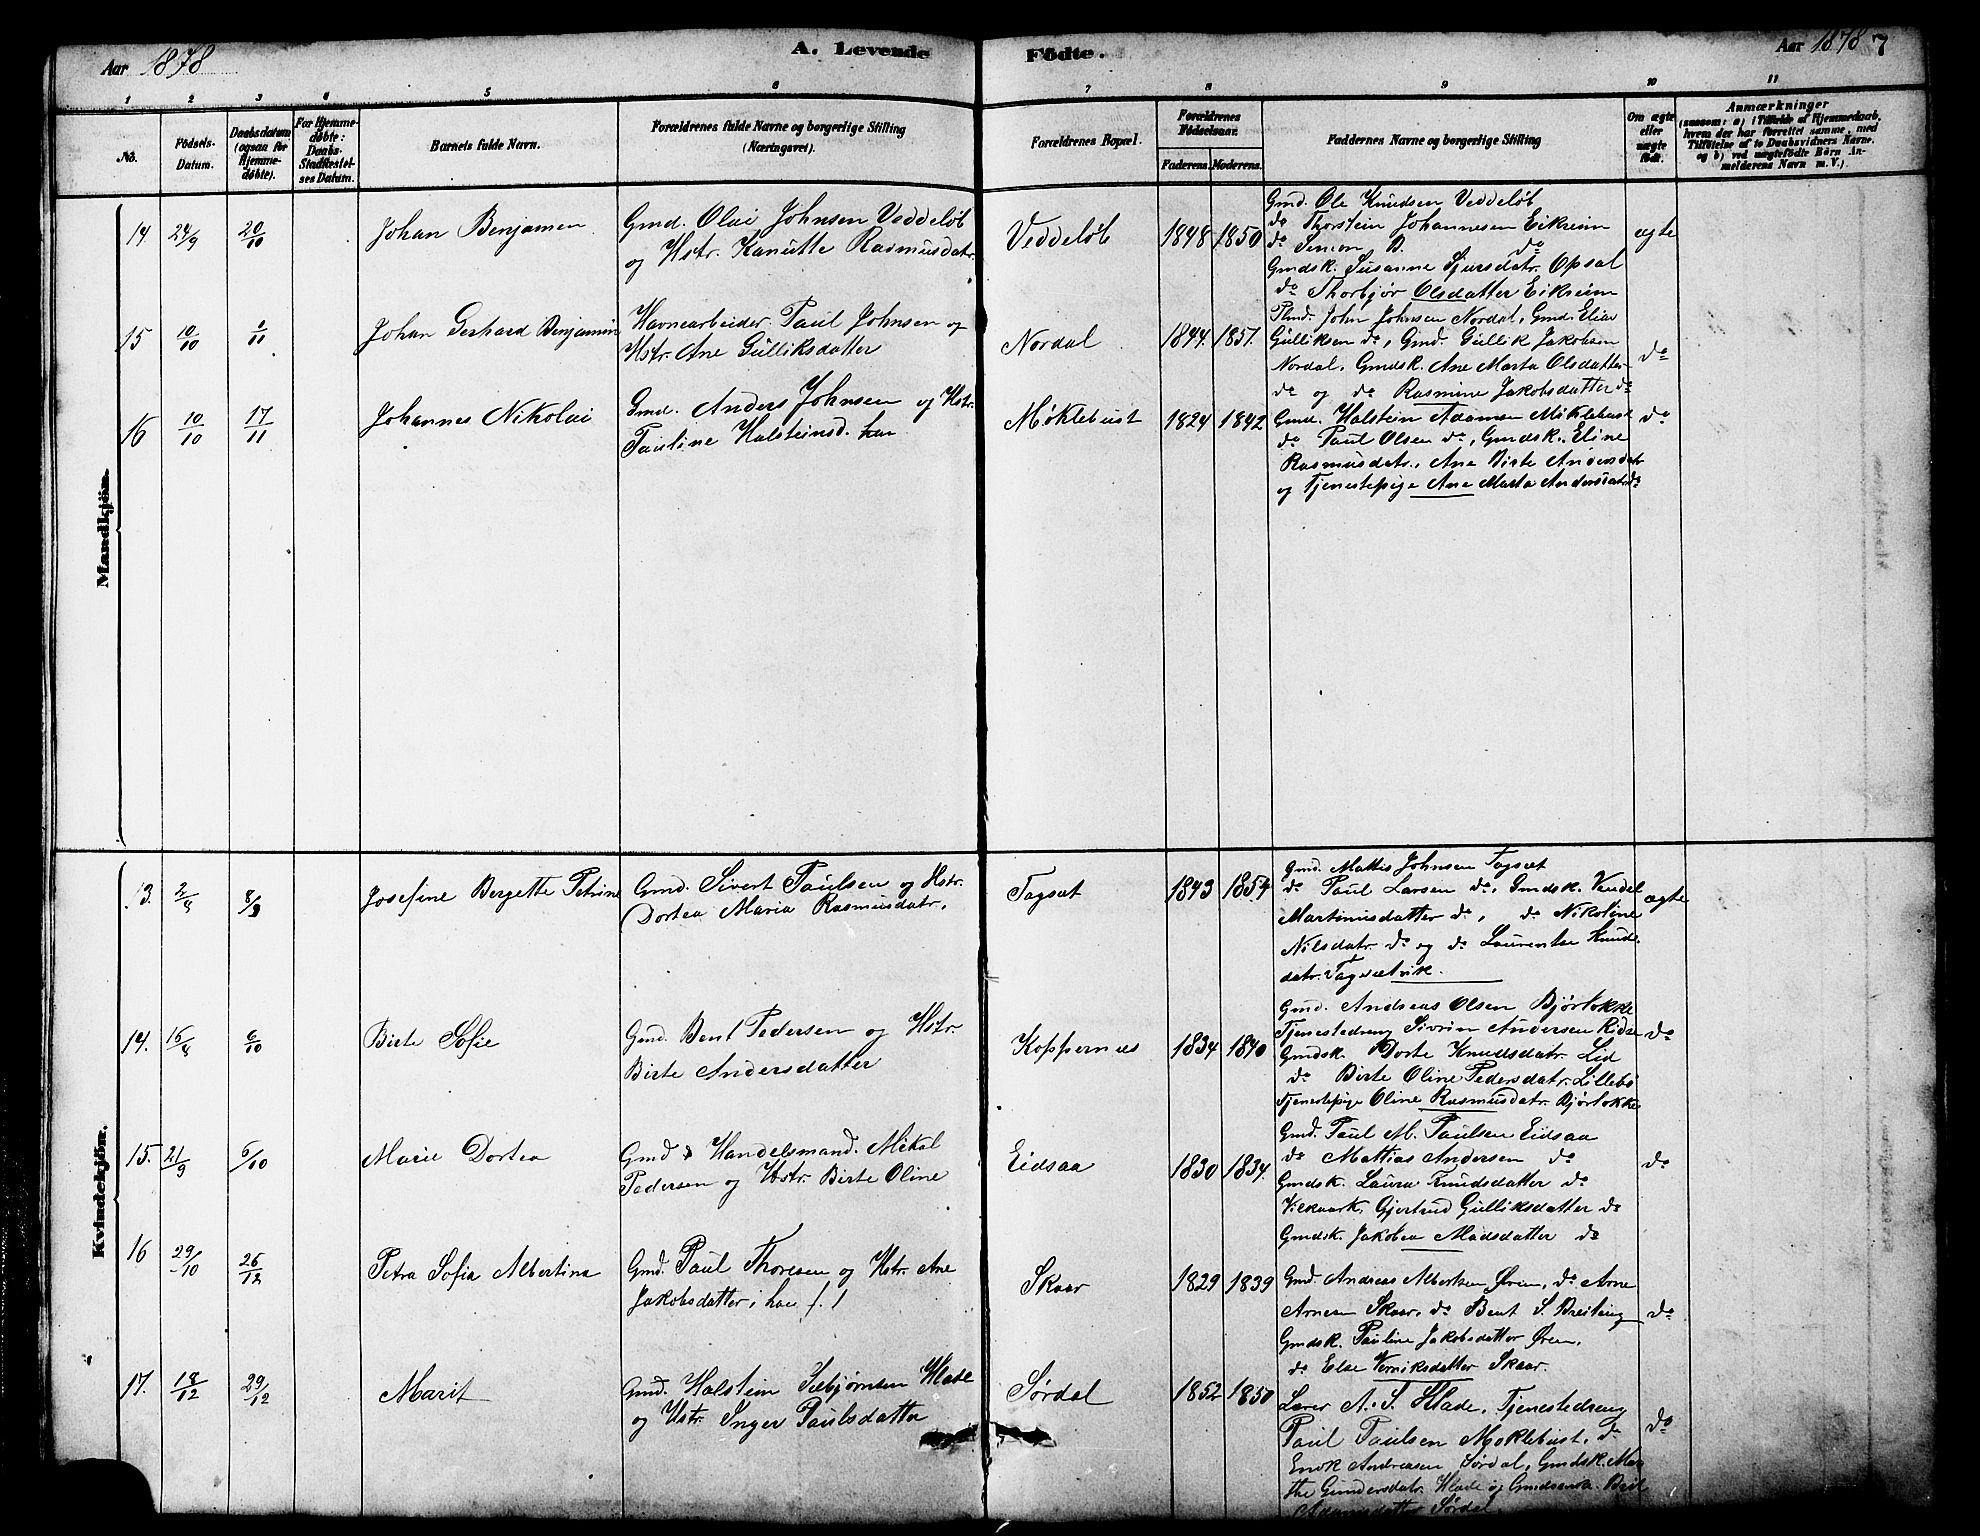 Aar 1878
A. Levende Födte.
Aar 1878 7
1 2 3 4 5 6 7 8 9 10 11
No.
Födsels-Datum.
Daabsdatum (ogsaa for Hjemmedøbte).
For Hjemmedøbte: Daabs-Stadfæstelses Datum.
Barnets fulde Navn.
Forældrenes fulde Navne og borgerlige Stilling (Næringsvei).
Forældrenes Bopæl.
Forældrenes Födselsaar.
Faderens. Moderens.
Faddernes Navne og borgerlige Stilling
Om ægte eller uægte født.
Anmærkninger
(saasom: a) i Tilfælde af Hjemmedaab, hvem der har forrettet samme, med Tilføielse af to Daabsvidners Navne. og b) ved uægtefödte Börn Anmelderens Navn m. V.).
Mandkjön.
14. 24/9 20/10 Johan Benjamen
Gmd. Olai Johnsen Veddeløb
og Hstr. Kanutte Rasmusdatr.
Veddeløb 1848 1850
Gmd. Ole Knudsen Veddeløb
do Thorstein Johannesen Eikreim
do Simon D. do
Gmdsk. Susanne Sjursdatr. Opsal
do Thorbjør Olsdatter Eikreim
ægte
15 10/10 1/11 Johan Gerhard Benjamin
Havnearbeider Paul Johnsen og
Hstr. Ane Gulliksdatter
Nordal 1844. 1857.
John Johnsen Nordal, Gmd. Elias
Gulliksen do, Gmd. Gullik Jakobsen
Nordal, Gmdsk. Ane Marta Olsdatter
do og do Rasmine Jakobsdatter do
do
16 10/10 17/11 Johannes Nikolai
Gmd. Anders Johnsen og Hstr.
Pauline Halsteinsd. han
Møklebust 1824 1842
Gmd. Halstein Adamsen Møklebust
do Paul Olsen do, Gmdsk. Eline
Rasmusdatr., Ane Birte Andersdatr
og Tjenestepige Ane Marta Andersdatr do
do
Kvindekjön.
13. 2/8 8/9 Josefine Bergette Petrine
Gmd. Sivert Paulsen og Hstr.
Dortea Maria Rasmusdatr.
Tagsæt 1843 1854
Gmd. Mattis Johnsen Tagsæt
do Paul Larsen do, Gmdsk. Vendel
Martinusdatter do, do Nikoline
Nilsdatr. do og do Laurentse Knuds
datr. Tagsætvik.
ægte
14. 16/8 6/10 Birte Sofie
Gmd. Bent Pedersen og Hstr.
Birte Andersdatter
Koppernæs 1834 1840
Gmd. Andreas Olsen Bjørlokke
Tjenestedreng Sivrin Andersen
Gmdsk. Dorte Knudsdatr. Lid
do Birte Oline Pedersdatr. Lillebø
Tjenestepige Oline Rasmusdatr. Bjørlokke
do
15. 21/9 6/10 Marie Dortea
Gmd & Handelsmand. Mikal
Pedersen og Hstr. Birte Oline
Eidsaa 1830 1834.
Gmd. Paul M. Paulsen Eidsaa
do Mattias Andersen do
Gmdsk. Laura Knudsdatter do
Gjertrud Gulliksdatter do
Gmdsk. Jakobea Madsdatter do
do
16 29/10 26/12 Petra Sofia Albertina
Gmd. Paul Thoresen og Hstr. Ane
Jakobsdatter
Skaar 1829 1839
Gmd. Andreas Albertsen Øren, do Arne
Arnesen Skaar, do Bent S. Breiteig
Gmdsk. Pauline Jakobsdatter Øren,
do Else Verniksdatter Skaar.
do
17. 18/12 29/12 Marit
Gmd. Halstein Sæbjørnsen Hlade
og Hstr. Inger Paulsdatter
Sørdal 1852 1850
Lærer A. S. Hlade, Tjenestedreng
Paul Paulsen Moklebust, do
Enok Andreasen Sørdal, Gmdsk. Mar
the Gundersdatr. Hlade og
Adamsdatter Sørdal
do